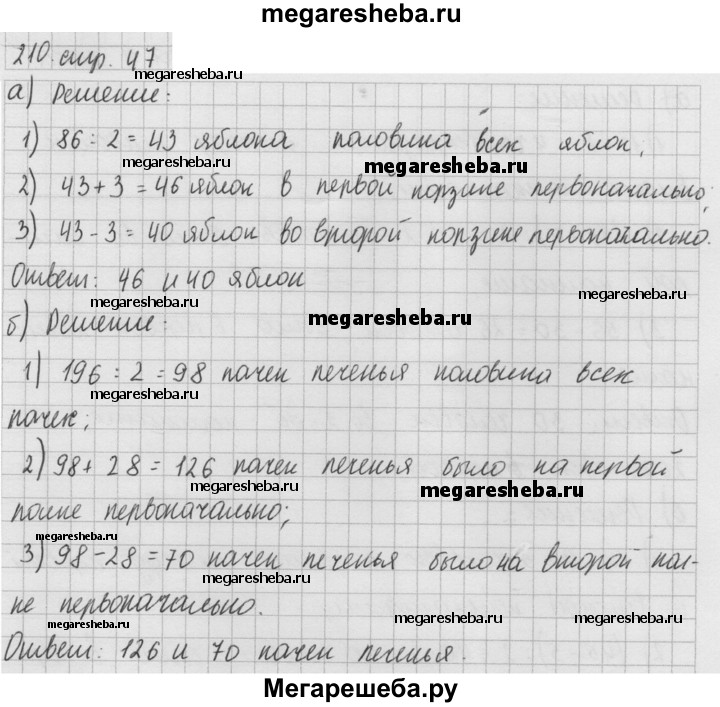 megaresheba.ru
210. стр. 47
megaresheba.ru
а) Решение:
megaresheba.ru
1) 86 : 2 = 43 яблока половина всех яблок.
megaresheba.ru megaresheba.ru
2) 43 + 3 = 46 яблок в первой корзине первоначально;
3) 43 - 3 = 40 яблок во второй корзине первоначально.
Ответ: 46 и 40 яблок
megaresheba.ru megaresheba.ru
б) Решение:
megaresheba.ru
megaresheba.ru
1) 196 : 2 = 98 пачек печенья половина всех
megaresheba.ru
пачек;
2) 98 + 28 = 126 пачек печенья было на первой
megaresheba.ru megaresheba.ru
полке первоначально;
megaresheba.ru
3) 98 - 28 = 70 пачек печенья было на второй пол-
megaresheba.ru
ке первоначально.
megaresheba.ru megaresheba.ru
Ответ: 126 и 70 пачек печенья.
Мегарешеба.ру